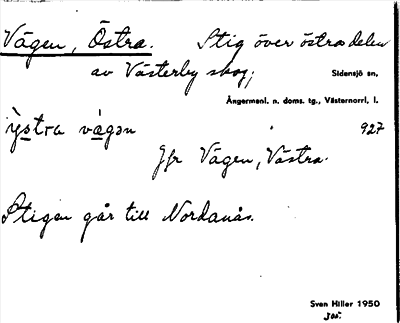 Vägen, Östra. Stig över östra delen
av Västerby skog;
Sidensjö sn,
Ångermanl. n. doms. tg., Västernorrl. l.
vägən 927
Jfr Vägen, Västra.
Stigen går till Nordanås.
Sven Hiller 1950